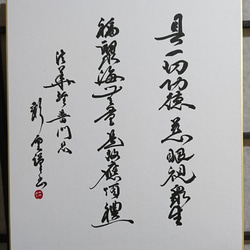 具一切功德慈眼視衆生
福聚海無量是故應頂禮
法華経普門品